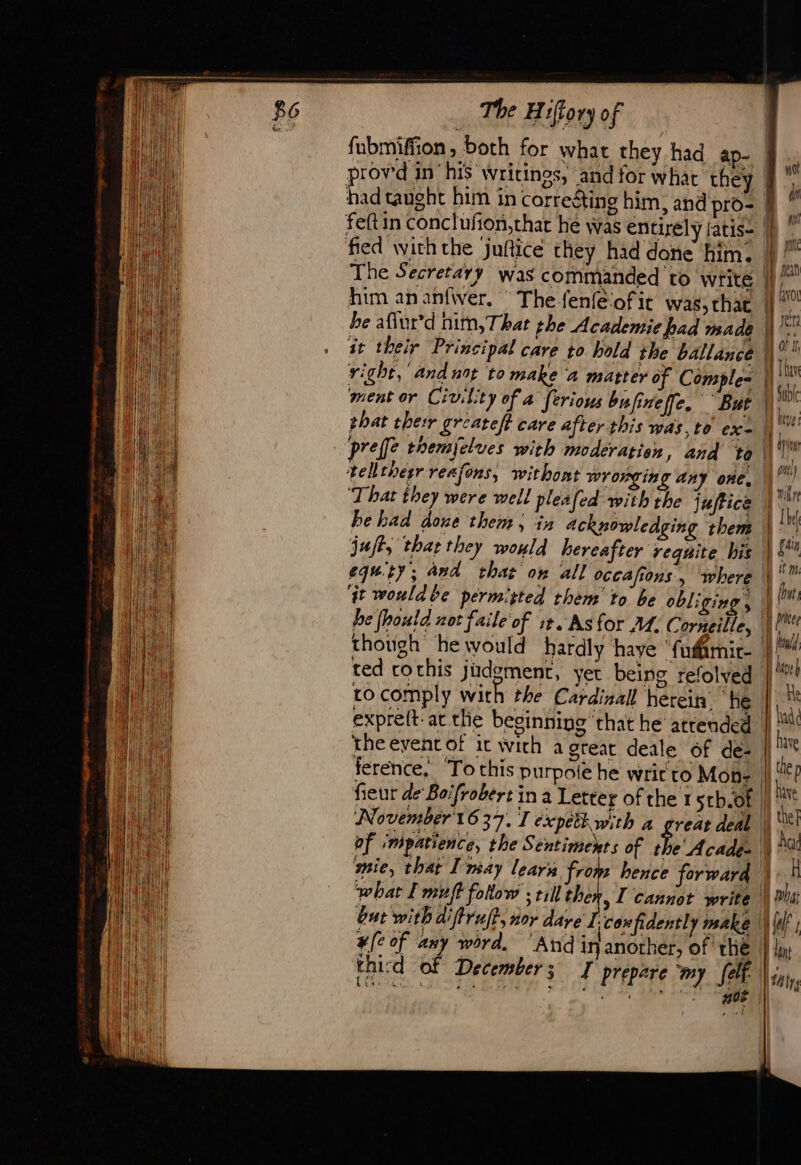 86
The History of
ſubmiſſion, both for what they had ap-
prov'd in his writings, and for what they
had taught him in correcting him, and pro-
feſt in concluſion, that he was entirely ſatis-
fied with the juſtice they had done him.
The Secretary was commanded to write
him an anſwer. The ſenſe of it was, that
he aſſur'd him, That the Academie had made
it their Principal care to hold the ballance
right, and not to make a matter of Comple-
ment or Civility of a ſerious buſineſſe. But
that their greateſt care after this was, to ex-
preſſe themſelves with moderation, and to
tell their reaſons, without wronging any one.
That they were well pleaſed with the juſtice
he had done them, in acknowledging them
juſt, that they would hereafter requite his
equity; and that on all occaſions, where
it would be permitted them to be obliging,
he ſhould not faile of it. As for M. Corneille,
though he would hardly have ſubmit-
ted to this judgment, yet being reſolved
to comply with the Cardinall herein, he
expreſt at the beginning that he attended
the event of it with a great deale of de-
ference. To this purpoſe he writ to Mon-
ſieur de Boiſrobert in a Letter of the 15th. of
November 1637. I expect with a great deal
of impatience, the Sentiments of the Acade-
mie, that I may learn from hence forward
what I muſt follow; till then, I cannot write
but with diſtruſt, nor dare I confidently make
uſe of any word. And in another, of the
third of December; I prepare my ſelf
not